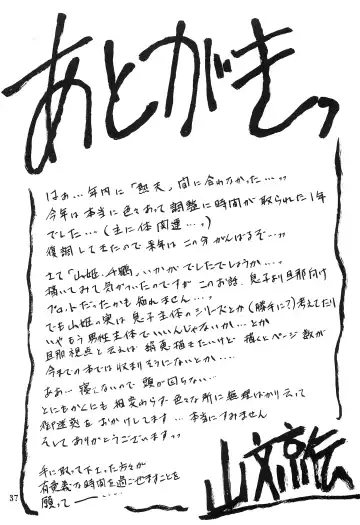 あとがきっ
はぁ…年内に「熱天」間に合わなかった…。
今年は本当に色々あって調整に時間が取られた1年
でした…(主に体関連…。)
復調してきたので来年はこの分がんばるぞー。
さて「山姫、千鶴」いかがでしたでしょうか…。
描いてみて気がついたのですがこのお話、息子より旦那向け
プロットだったかも知れません…。
でも山姫の実は息子主体のシリーズとか(勝手に?)考えてたり
いやもう男性主体でいいんじゃないか…とか
旦那視点と云えば絹恵も描きたいけど描くとページ数が
今までの本では収まりそうにないとか…。
ああ…寝てないので頭が回らない…
とにもかくにも相変わらず色々な所に無理ばかり云って
御迷惑をおかけしてます…本当にすみません
そしてありがとうございます。
手に取って下さった方々が
有意義な時間を過ごせますことを
願って――…
山文京伝
37